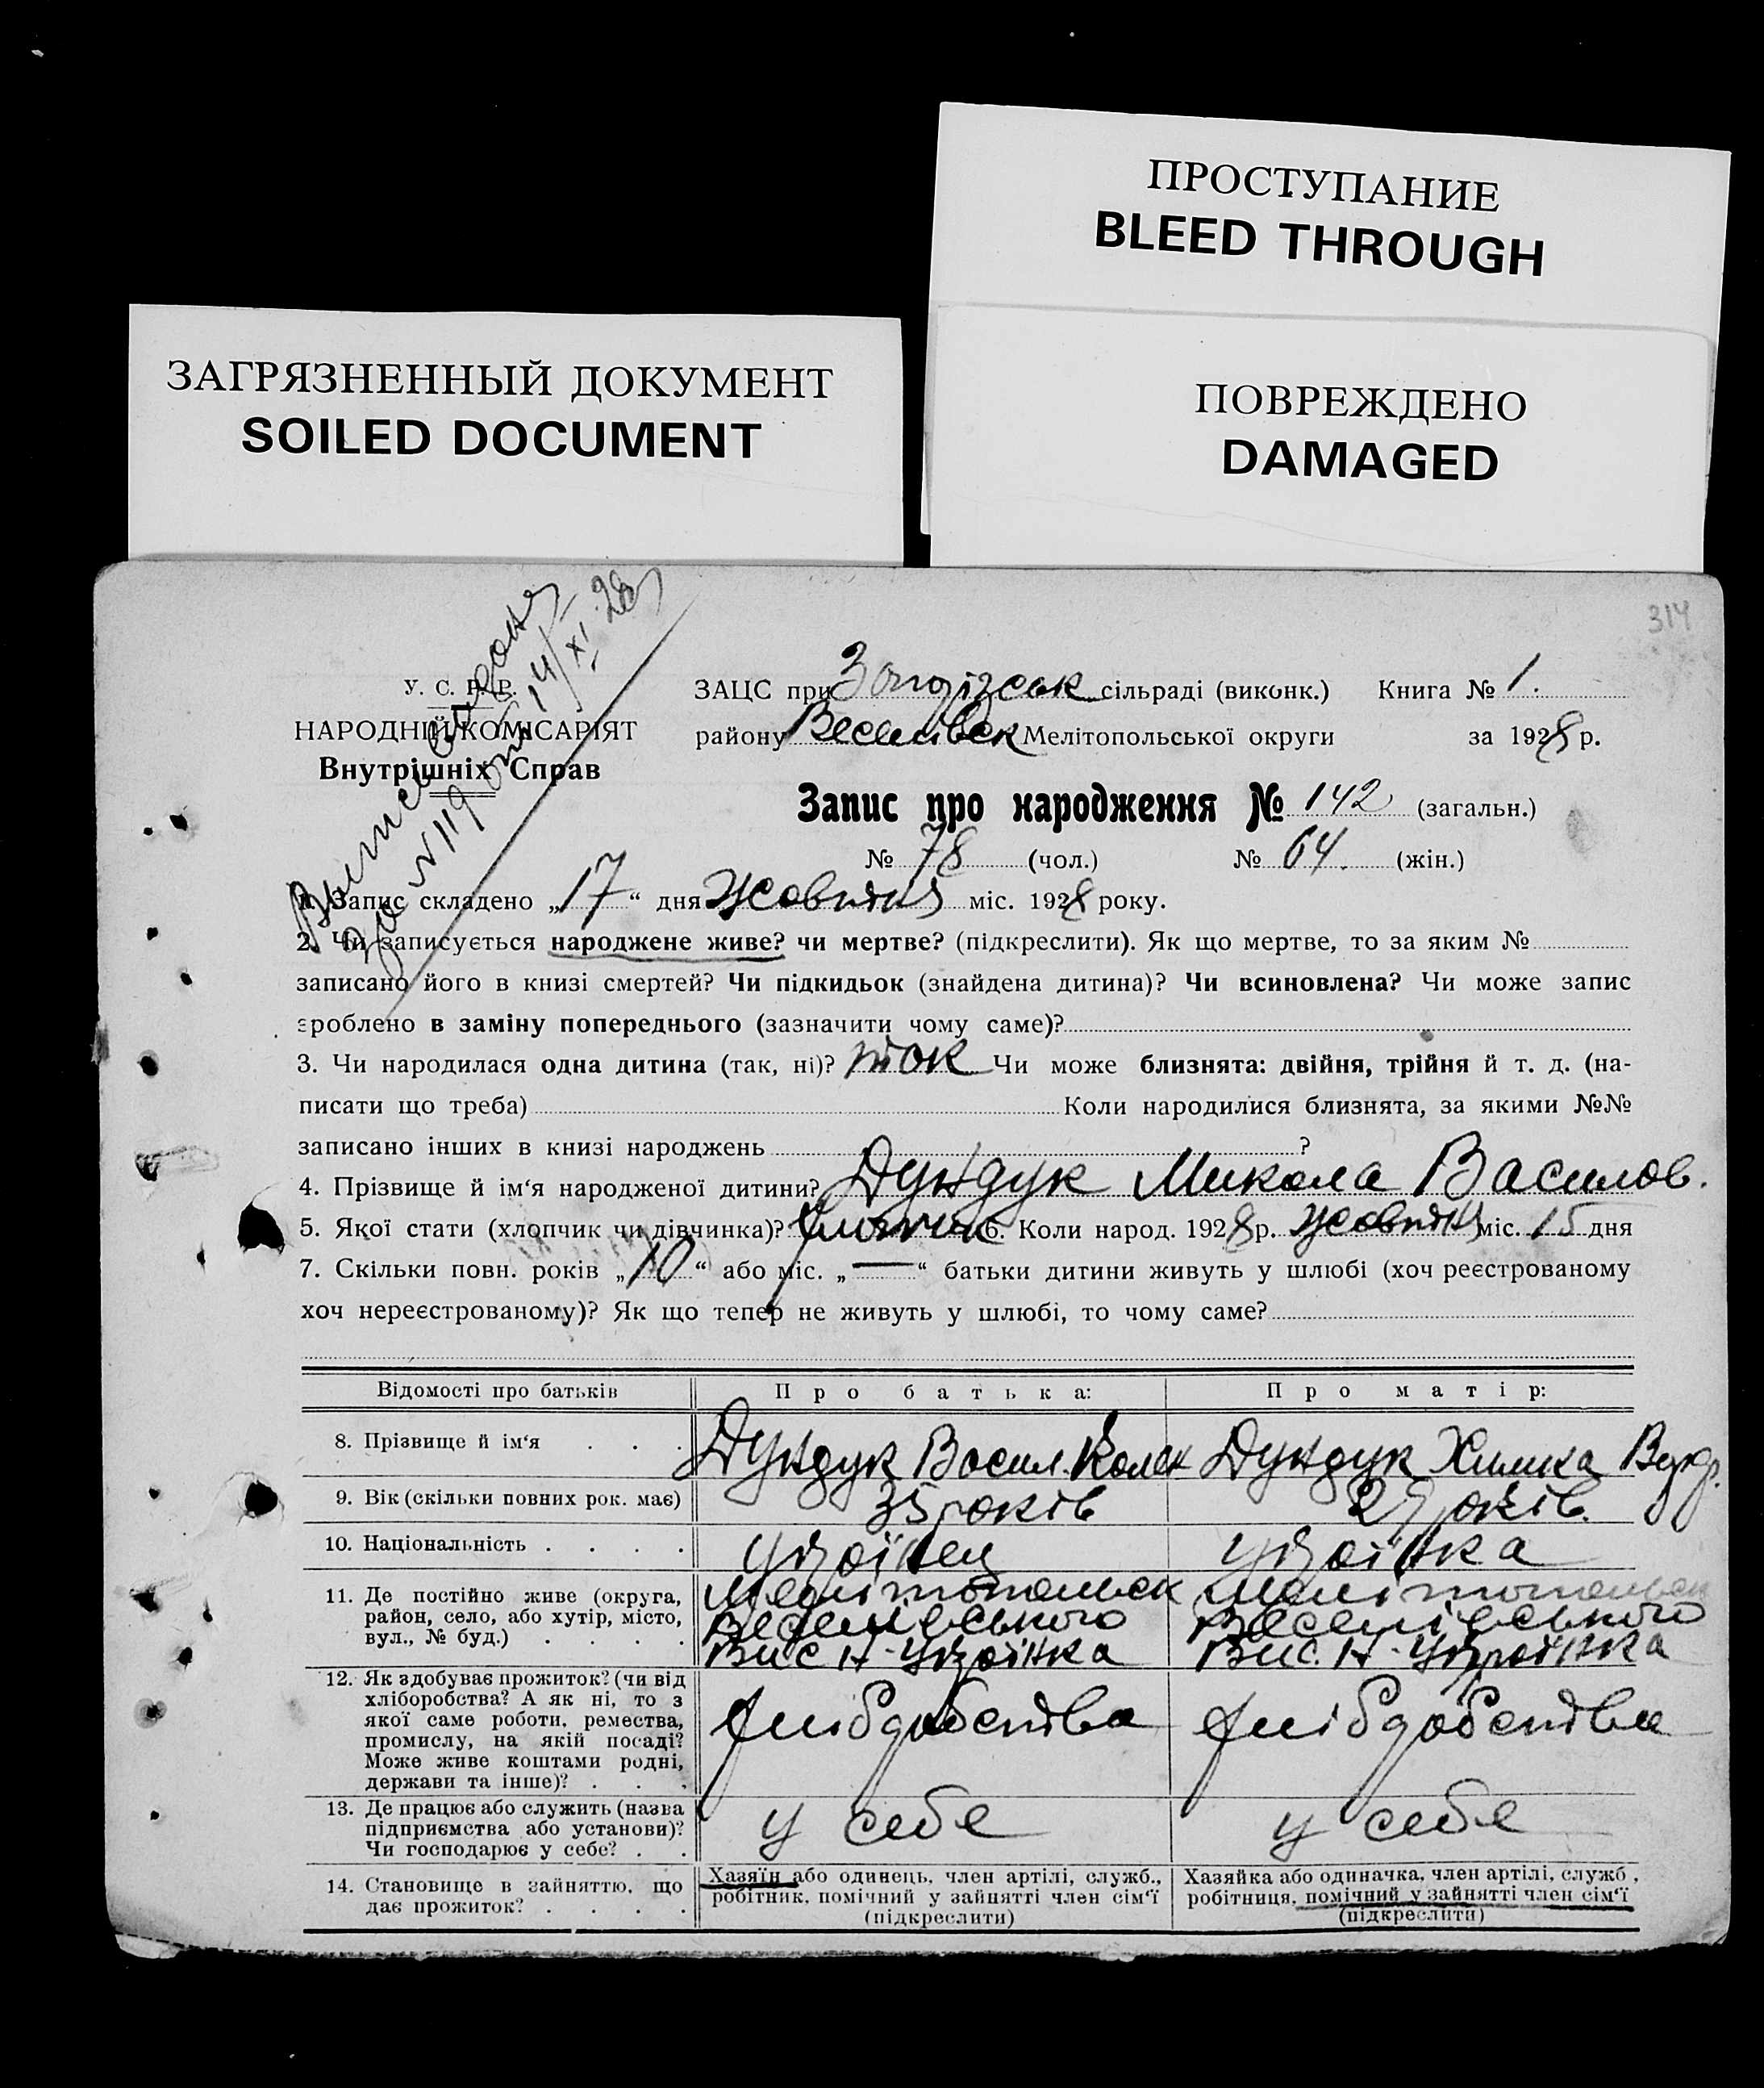 ПРОСТУПАНИЕ
BLEED THROUGH
ЗАГРЯЗНЕННЫЙ ДОКУМЕНТ
SOILED DOCUMENT
ПОВРЕЖДЕНО
DAMAGED
314
за №119 от 14/XI 28
У. С. Р. Р.
НАРОДНІЙ КОМІСАРІЯТ
Внутрішніх Справ
ЗАЦС при сільраді (виконк.) Книга № 1.
району Веселівськ Мелітопольської округи за 1928 р.
Запис про народження № 142 (загальн.)
№ 78 (чол.) № 64. (жін.)
1. Запис складено „17“ дня Жовтня міс. 1928 року.
2. Чи записується народжене живе? чи мертве? (підкреслити). Як що мертве, то за яким №
записано його в книзі смертей? Чи підкидьок (знайдена дитина)? Чи всиновлена? Чи може запис
зроблено в заміну попереднього (зазначити чому саме)?
3. Чи народилася одна дитина (так, ні)? так Чи може близнята: двійня, трійня й т. д. (на-
писати що треба) Коли народилися близнята, за якими №№
записано інших в книзі народжень ?
4. Прізвище й ім‘я народженої дитини? Дундук Микола Василов.
5. Якої стати (хлопчик чи дівчинка)? хлопчик 6. Коли народ. 1928 р. жовтня міс. 15 дня
7. Скільки повн. років „10“ або міс. „—“ батьки дитини живуть у шлюбі (хоч реєстрованому
хоч нереєстрованому)? Як що тепер не живуть у шлюбі, то чому саме?
Відомості про батьків Про батька: Про матір:
8. Прізвище й ім‘я . . . Дундук Васил. Дундук Химка
9. Вік (скільки повних рок. має) 35 років 29 років.
10. Національність . . . . Українец Українка
11. Де постійно живе (округа, район, село, або хутір, місто, вул., № буд.) . . . .
Мелітопольськ Мелітопольськ
Веселівського Веселівського
Вис Н-Українка Вис. Н-Українка
12. Як здобуває прожиток? (чи від
хліборобства? А як ні, то з
якої саме роботи, ремества,
промислу, на якій посаді?
Може живе коштами родні,
держави та інше)? . . .
хлібдобства хлібдобства
13. Де працює або служить (назва
підприємства або установи)?
Чи господарює у себе? . .
у себе у себе
14. Становище в зайняттю, що
дає прожиток? . . . .
Хазяїн або одинець, член артілі, служб.,
робітник, помічний у зайнятті член сім‘ї
(підкреслити)
Хазяйка або одиначка, член артілі, служб.,
робітниця, помічний у зайнятті член сім‘ї
(підкреслити)